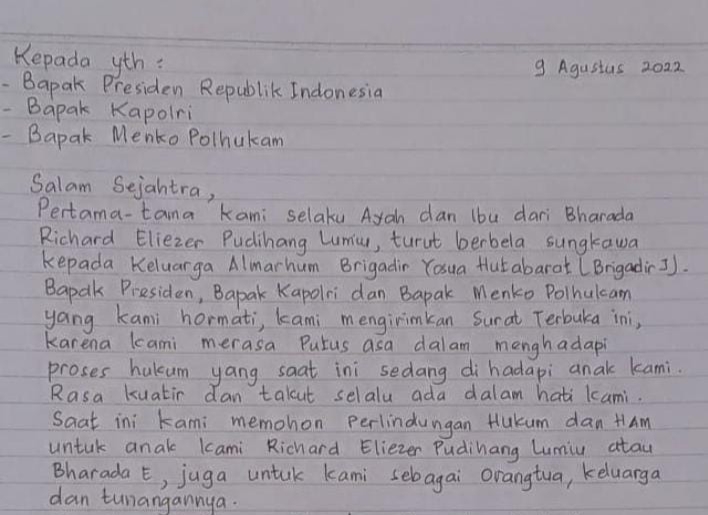 Kepada yth :
9 Agustus 2022
- Bapak Presiden Republik Indonesia
- Bapak Kapolri
- Bapak Menko Polhukam
Salam Sejahtra,
Pertama-tama kami selaku Ayah dan Ibu dari Bharada
Richard Eliezer Pudihang Lumiu, turut berbela sungkawa
kepada Keluarga Almarhum Brigadir Yosua Hutabarat (Brigadir J).
Bapak Presiden, Bapak Kapolri dan Bapak Menko Polhukam
yang kami hormati, kami mengirimkan Surat Terbuka ini,
karena kami merasa Putus asa dalam menghadapi
proses hukum yang saat ini sedang di hadapi anak kami.
Rasa kuatir dan takut selalu ada dalam hati kami.
Saat ini kami memohon Perlindungan Hukum dan HAM
untuk anak kami Richard Eliezer Pudihang Lumiu atau
Bharada E, juga untuk kami sebagai Orangtua, keluarga
dan tunangannya.